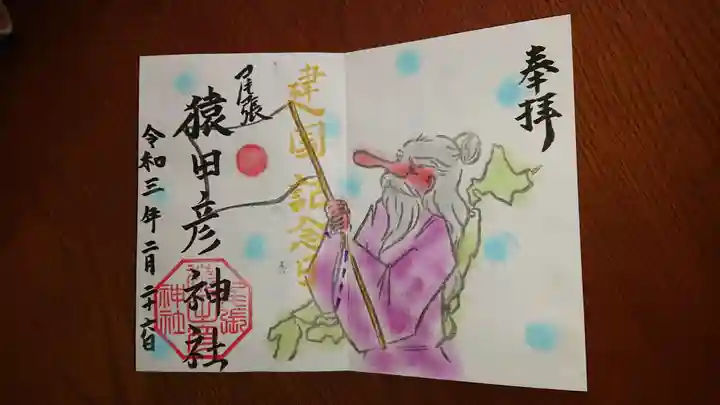 奉拝
建国記念日
尾張
猿田彦神社
令和三年二月二十六日